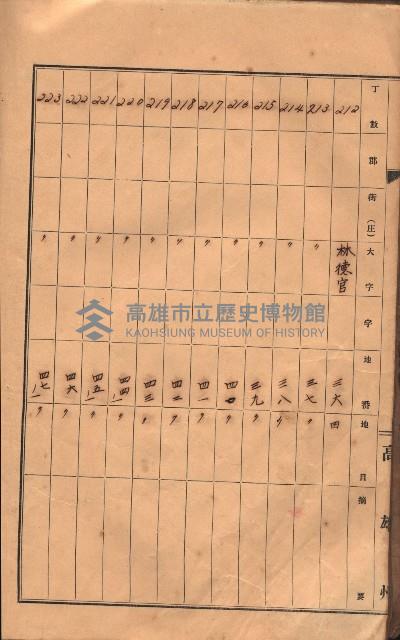 丁數 郡 街(庄) 大字 字 地番 地目 摘要
212 林德官 三六 田
213 〃 三七 〃
214 〃 三八 〃
215 〃 三九 〃
216 〃 四〇 〃
217 〃 四一 〃
218 〃 四二 〃
219 〃 四三 〃
220 〃 四四ノ一 〃
221 〃 四五ノ一 〃
222 〃 四六 〃
223 〃 四七ノ一 〃
高雄州
高雄市立歷史博物館
KAOHSIUNG MUSEUM OF HISTORY